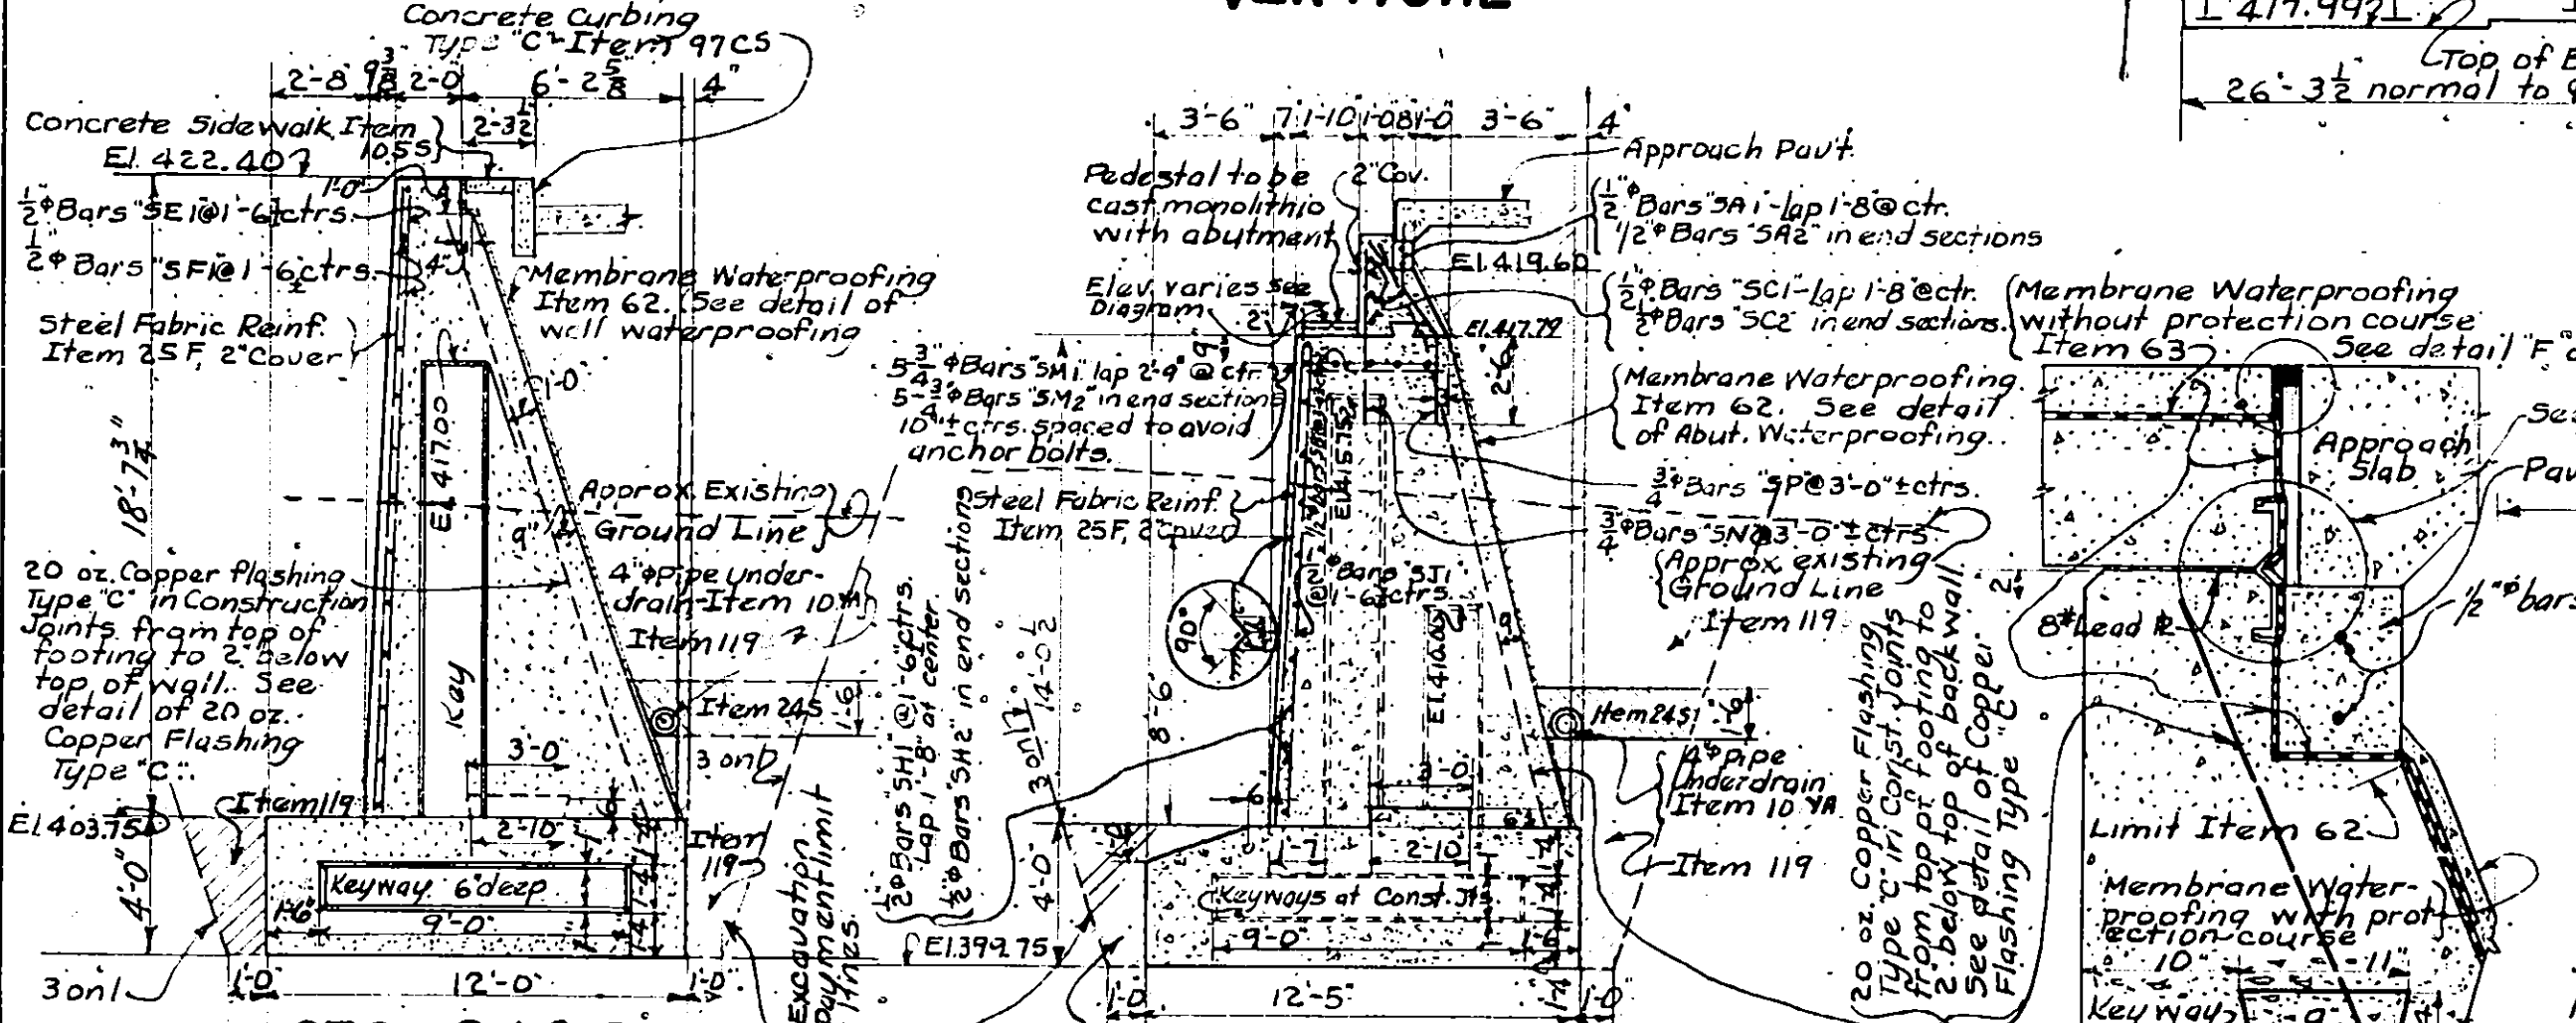 Concrete Curbing
Type "C" Item 97CS
2'-8" 9 3/8" 2'-0" 6'-2 5/8" 4"
2'-3 1/2"
Concrete Sidewalk Item
105S
El. 422.40
1'-0"
1/2"ϕ Bars "SE1@1'-6"± ctrs.
1/2"ϕ Bars "SF1@1'-6"± ctrs.
4"
Steel Fabric Reinf.
Item 25F, 2" Cover
Membrane Waterproofing
Item 62. (See detail of
wall waterproofing
1'-0"
El. 417.00
18'-7 3/4"
9"
Approx. Existing
Ground Line
20 oz. Copper flashing
Type "C" in Construction
Joints from top of
footing to 2" below
top of wall. See
detail of 20 oz.
Copper Flashing
Type "C".
4"ϕ Pipe under-
drain-Item 10
Item 119
Key
Item 24S
1'-6"
3 on 1
3'-0"
Item 119
El. 403.75
2'-10"
1'-4"
1'-4"
1'-4"
Item
119
Keyway 6" deep
4'-0"
1'-6"
9'-0"
3 on 1
1'-0" 12'-0" 1'-0"
Excavation
payment limit
lines.
3'-6" 7" 1'-10" 1'-0" 8" 1'-0" 3'-6" 4"
Approach Pav't.
Pedestal to be
cast monolithic
with abutment
2" Cov.
1/2"ϕ Bars "SA1"-lap 1'-8" @ ctr.
1/2"ϕ Bars "SA2" in end sections
El. 419.60
Elev. varies see
Diagram
2"
1/2"ϕ Bars "SC1"-lap 1'-8" @ ctr.
1/2"ϕ Bars "SC2" in end sections.
El. 417.79
9"
2'-6"
5-3/4"ϕ Bars "SM1" lap 2'-9" @ ctr.
5-3/4"ϕ Bars "SM2" in end sections
10"± ctrs. spaced to avoid
anchor bolts.
Membrane Waterproofing
Item 62. See detail
of Abut. Waterproofing.
El. 415.75
Steel Fabric Reinf.
Item 25F, 2" cover
3/4"ϕ Bars "SP" @ 3'-0"± ctrs.
3/4"ϕ Bars "SN" @ 3'-0"± ctrs
Approx. existing
Ground Line
Item 119
1/2"ϕ Bars "SJ1"
@ 1'-6"± ctrs.
90°
El. 410.00
9"
1/2"ϕ Bars "SH1" @ 1'-6"± ctrs.
Lap 1'-8" at center.
1/2"ϕ Bars "SH2" in end sections
3 on 1
14'-0 1/2"
8'-6"
Item 24S
1'-6"
4"ϕ pipe
Underdrain
Item 10 YA
6"
3'-0"
Item 119
1'-7"
2'-10"
4'-0"
Keyways at Const. Jts.
9'-0"
El. 399.75
1'-0" 12'-5" 1'-0"
20 oz. Copper Flashing
Type "C" in Const. Joints
from top of footing to
2" below top of backwall.
See detail of Copper
Flashing Type "C"
417.992
Top of
26'-3 1/2" normal to
Membrane Waterproofing
without protection course
Item 63
See detail "F"
Approach
Slab
2"
8# Lead
1/2"ϕ bars
Limit Item 62
Membrane Water-
proofing with prot-
ection course
10" 11"
Keyway
9"